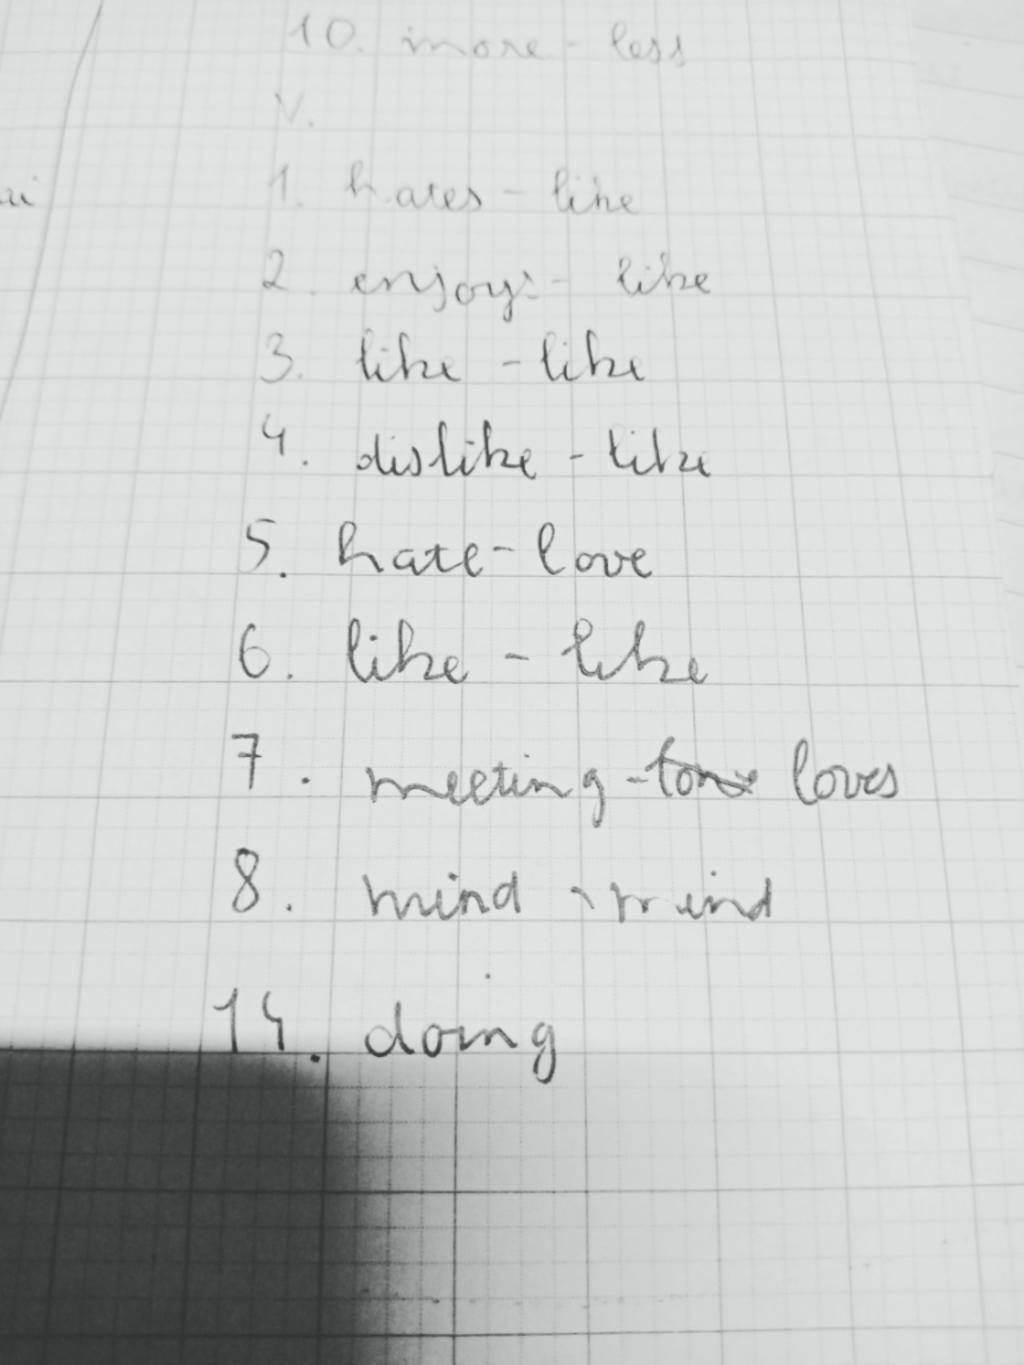 10. more - less
V.
1. hates - like
2. enjoys - like
3. like - like
4. dislike - like
5. hate - love
6. like - like
7. meeting - loves
8. mind - mind
14. doing